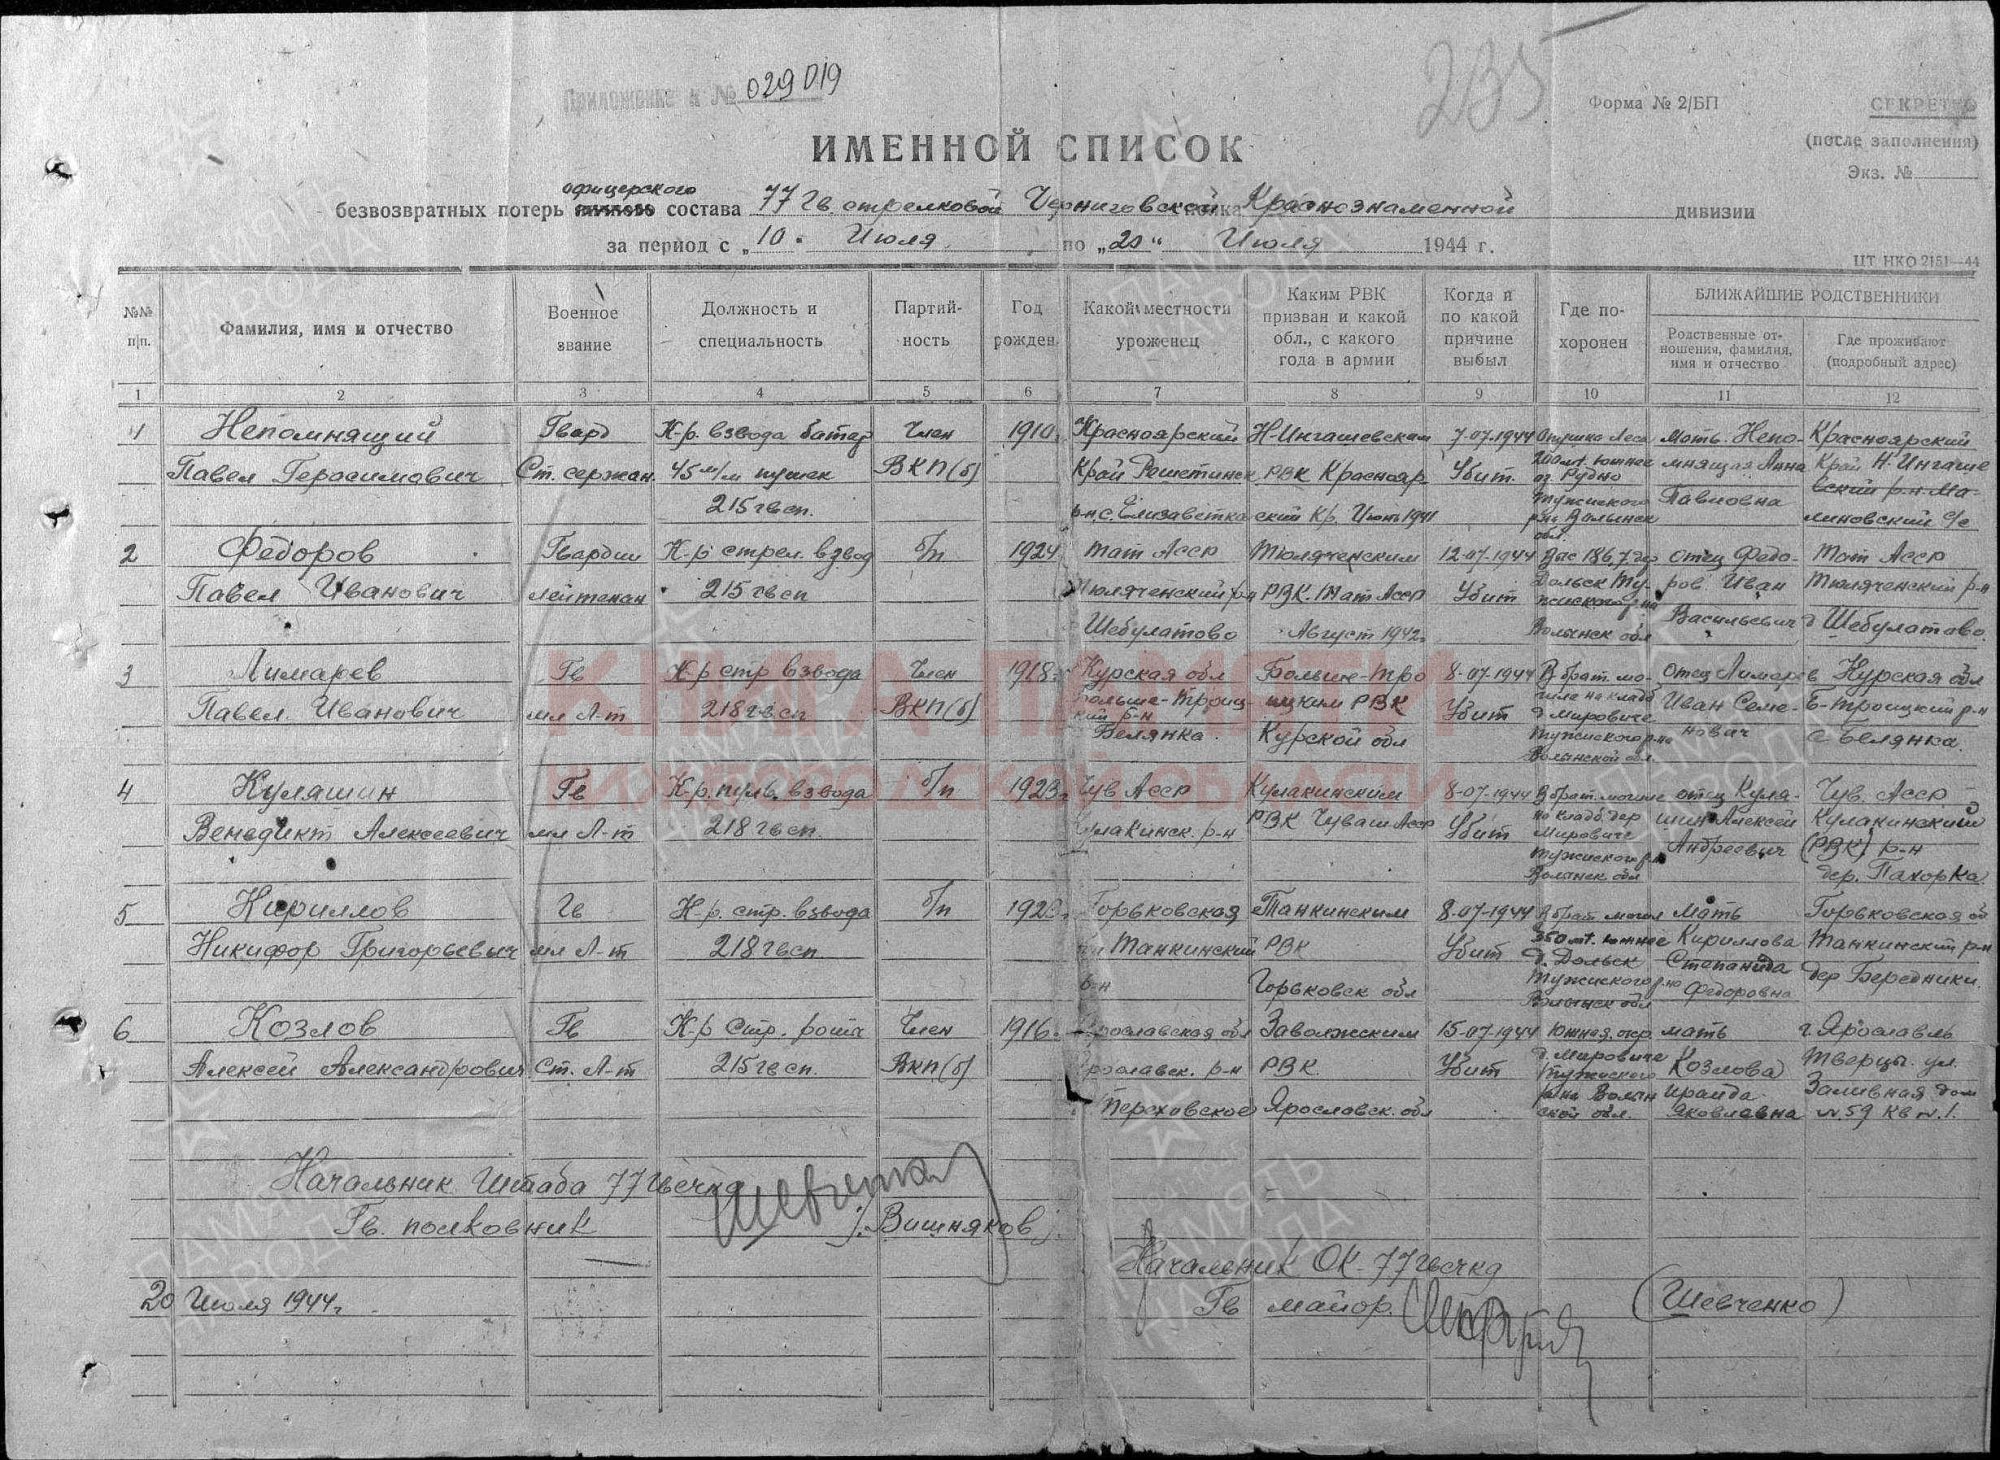 Приложение к № 029019
235
Форма № 2/БП
СЕКРЕТНО
(после заполнения)
Экз. №
ИМЕННОЙ СПИСОК
офицерского
безвозвратных потерь состава 77 Гв. стрелковой Черниговской Краснознаменной дивизии
за период с „10" Июля по „20" Июля 1944 г.
ЦТ НКО 2151—44
№№ п|п. Фамилия, имя и отчество Военное звание Должность и специальность Партий-ность Год рожден. Какой местности уроженец Каким РВК призван и какой обл., с какого года в армии Когда и по какой причине выбыл Где по-хоронен БЛИЖАЙШИЕ РОДСТВЕННИКИ
Родственные от-ношения, фамилия, имя и отчество Где проживают (подробный адрес)
1 2 3 4 5 6 7 8 9 10 11 12
1 Непомнящий Гвард К-р. взвода батар Член 1910 Красноярский Н-Ингашевским 7-07-1944 Опушка леса мать Непо- Красноярский
Павел Герасимович Ст. сержан. 45 м/м пушек ВКП(б) Край Решетинск РВК Краснояр Убит. 200 мт. южнее мнящая Анна Край Н-Ингаше
оз. Рудно
215 гвсп. р-н, с. Елизаветка ский Кр. Июнь 1941 Павловна вский р-н Ма-
р-на Волынск линовский с/с
обл.
2 Федоров Гвардии К-р стрел. взвод б/п 1924 Тат Асср Тюляченским 12-07-1944 Выс 186,7 отец Федо- Тат Асср
Павел Иванович лейтенан 215 гвсп Тюляченский р-н РВК. Тат Асср Убит Дольск ров Иван Тюляченский р-н
Шебулатово Август 1942г Волынск обл Васильевич д Шебулатово.
3 Лимарев Гв К-р стр взвода Член 1918 Курская обл Больше-Тро 8-07-1944 В брат. мо- отец Лимарев Курская обл
Павел Иванович мл Л-т 218 гвсп ВКП(б) Больше-Троиц- ицким РВК Убит гила на кладб Иван Семе- Б-Троицкий р-н
кий р-н д Мировиче
Белянка. Курской обл нович с Белянка.
Волынской обл.
4 Куляшин Гв К-р. пулв. взвода б/п 1923г Чув Асср Кулакинским 8-07-1944 В брат. могиле отец Куля- Чув. Асср
Венедикт Алексеевич мл Л-т 218 гвсп. Кулакинск. р-н РВК Чуваш Асср Убит на кладб. дер шин Алексей Кулакинский
Мировиче
Андреевич (РВК) р-н
Волынск обл дер. Пахорка
5 Кириллов Гв К-р. стр. взвода б/п 1923г. Горьковская Танкинским 8-07-1944 В брат могил Мать Горьковская об
Никифор Григорьевич мл Л-т 218 гвсп Танкинский РВК Убит 350 мт. южнее Кириллова Танкинский р-н
д. Дольск Степанида дер Бередники.
р-н Горьковск обл Федоровна
Волынск обл
6 Козлов Гв К-р Стр. роты Член 1916г. Ярославская обл Заволжским 15-07-1944 Южная окр. мать г. Ярославль
Алексей Александрович Ст. Л-т 215 гвсп. Вкп(б) Ярославск. р-н РВК. Убит д. Мировиче Козлова Тверцы. ул.
р-на Волын Ираида Заливная дом
Переховское Ярославск. обл ской обл. Яковлевна №. 59 кв №. 1.
Начальник Штаба 77 гвсчкд Шевченко
Гв. полковник /. Вишняков /.
Начальник ОК-77 гвсчкд
20 Июля 1944г. Гв майор. (Шевченко)
КНИГА ПАМЯТИ
НИЖЕГОРОДСКОЙ ОБЛАСТИ
ПАМЯТЬ
НАРОДА